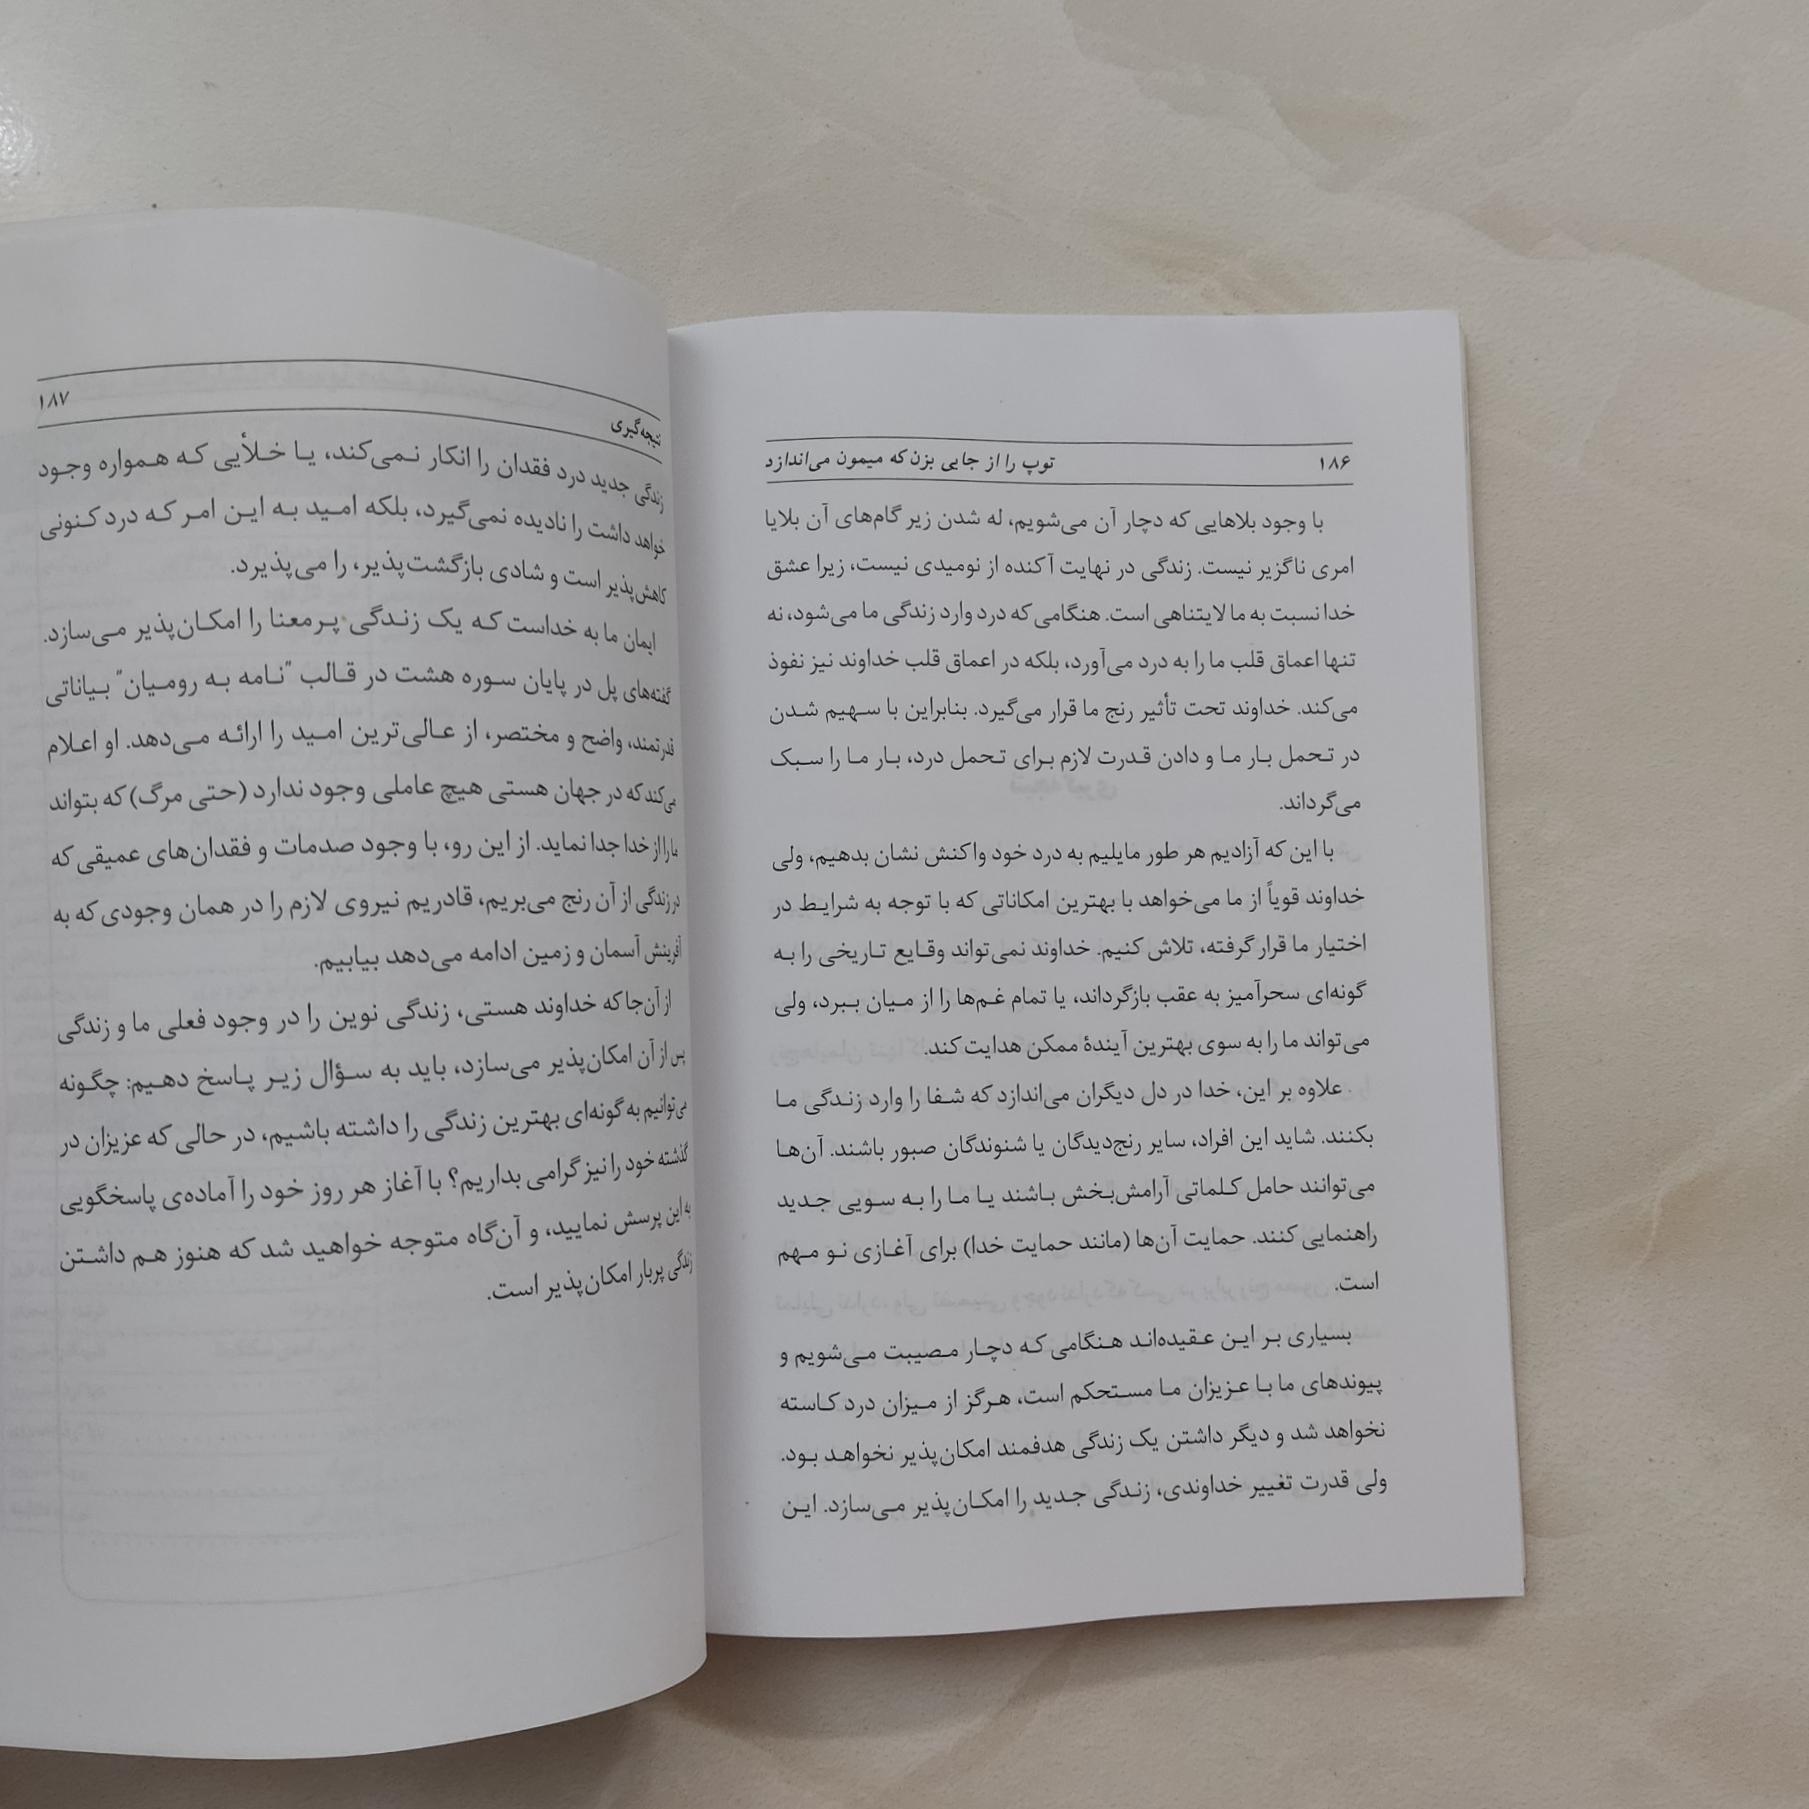 ۱۸۶
توپ را از جایی بزن که میمون می‌اندازد
با وجود بلاهایی که دچار آن می‌شویم، له شدن زیر گام‌های آن بلایا
امری ناگزیر نیست. زندگی در نهایت آکنده از نومیدی نیست، زیرا عشق
خدا نسبت به ما لایتناهی است. هنگامی که درد وارد زندگی ما می‌شود، نه
تنها اعماق قلب ما را به درد می‌آورد، بلکه در اعماق قلب خداوند نیز نفوذ
می‌کند. خداوند تحت تأثیر رنج ما قرار می‌گیرد. بنابراین با سهیم شدن
در تحمل بار ما و دادن قدرت لازم برای تحمل درد، بار ما را سبک
می‌گرداند.
با این که آزادیم هر طور مایلیم به درد خود واکنش نشان بدهیم، ولی
خداوند قویاً از ما می‌خواهد با بهترین امکاناتی که با توجه به شرایط در
اختیار ما قرار گرفته، تلاش کنیم. خداوند نمی‌تواند وقایع تاریخی را به
گونه‌ای سحرآمیز به عقب بازگرداند، یا تمام غم‌ها را از میان ببرد، ولی
می‌تواند ما را به سوی بهترین آیندهٔ ممکن هدایت کند.
علاوه بر این، خدا در دل دیگران می‌اندازد که شفا را وارد زندگی ما
بکنند. شاید این افراد، سایر رنج‌دیدگان یا شنوندگان صبور باشند. آن‌ها
می‌توانند حامل کلماتی آرامش‌بخش باشند یا ما را به سویی جدید
راهنمایی کنند. حمایت آن‌ها (مانند حمایت خدا) برای آغازی نو مهم
است.
بسیاری بر این عقیده‌اند هنگامی که دچار مصیبت می‌شویم و
پیوندهای ما با عزیزان ما مستحکم است، هرگز از میزان درد کاسته
نخواهد شد و دیگر داشتن یک زندگی هدفمند امکان‌پذیر نخواهد بود.
ولی قدرت تغییر خداوندی، زندگی جدید را امکان‌پذیر می‌سازد. این
نتیجه‌گیری
۱۸۷
زندگی جدید درد فقدان را انکار نمی‌کند، یا خلأیی که همواره وجود
خواهد داشت را نادیده نمی‌گیرد، بلکه امید به این امر که درد کنونی
کاهش‌پذیر است و شادی بازگشت‌پذیر، را می‌پذیرد.
ایمان ما به خداست که یک زندگی پرمعنا را امکان‌پذیر می‌سازد.
گفته‌های پل در پایان سوره هشت در قالب "نامه به رومیان" بیاناتی
قدرتمند، واضح و مختصر، از عالی‌ترین امید را ارائه می‌دهد. او اعلام
می‌کند که در جهان هستی هیچ عاملی وجود ندارد (حتی مرگ) که بتواند
ما را از خدا جدا نماید. از این رو، با وجود صدمات و فقدان‌های عمیقی که
در زندگی از آن رنج می‌بریم، قادریم نیروی لازم را در همان وجودی که به
آفرینش آسمان و زمین ادامه می‌دهد بیابیم.
از آن‌جا که خداوند هستی، زندگی نوین را در وجود فعلی ما و زندگی
پس از آن امکان‌پذیر می‌سازد، باید به سؤال زیر پاسخ دهیم: چگونه
می‌توانیم به گونه‌ای بهترین زندگی را داشته باشیم، در حالی که عزیزان در
گذشته خود را نیز گرامی بداریم؟ با آغاز هر روز خود را آماده‌ی پاسخگویی
به این پرسش نمایید، و آن‌گاه متوجه خواهید شد که هنوز هم داشتن
زندگی پربار امکان‌پذیر است.